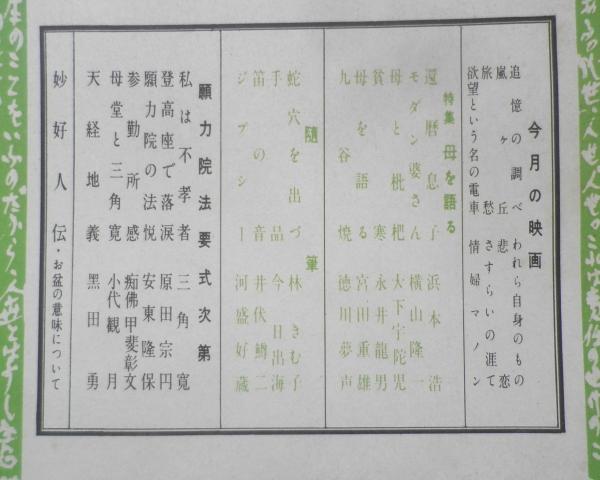 今月の映画
追憶の調べ われら自身のもの
嵐ヶ丘 悲恋
旅愁 さすらいの涯て
欲望という名の電車 情婦マノン
特集 母を語る
還暦息子 浜本浩
モダン婆さん 横山隆一
母と枇杷 大下宇陀児
貧寒 永井龍男
母を語る 宮田重雄
九谷焼 徳川夢声
随筆
蛇穴を出づ 林きむ子
手品 今日出海
笛の音 井伏鱒二
ジプシー 河盛好蔵
願力院法要式次第
私は不孝者 三角寛
登高座で落涙 原田宗円
願力院の法悦 安東隆保
参勤所感 痴佛甲斐彰文
母堂と三角寛 小代観月
天経地義 黒田勇
妙好人伝・お盆の意味について